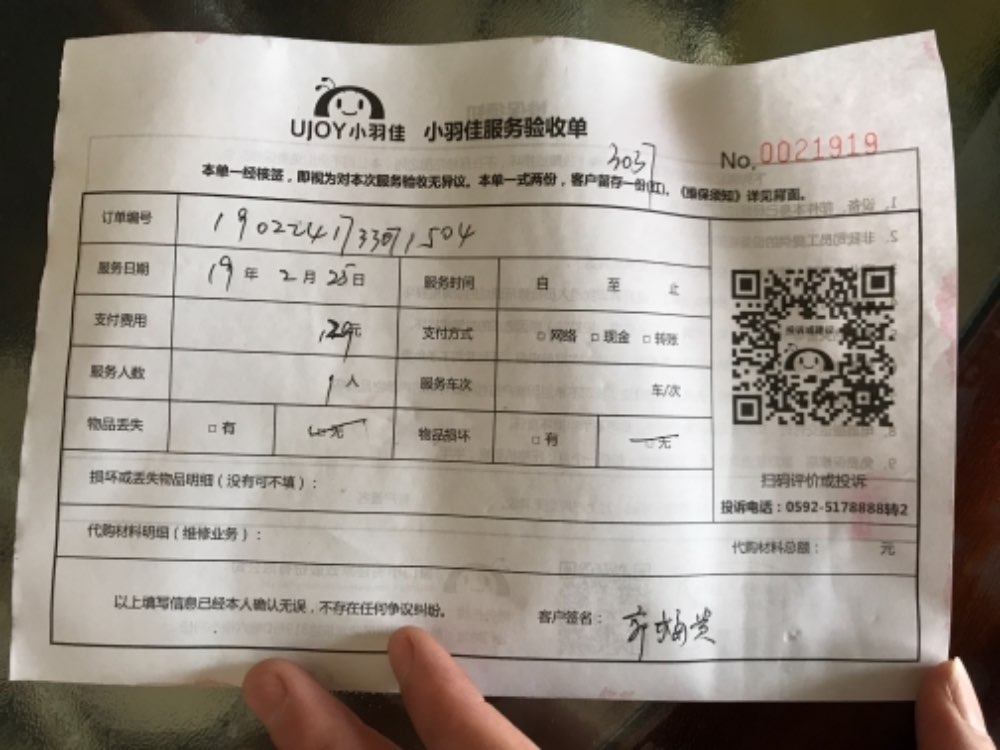 UJOY小羽佳 小羽佳服务验收单
3037
No. 0021919
本单一经核签，即视为对本次服务验收无异议。本单一式两份，客户留存一份(红)。《维保须知》详见背面。
订单编号
服务日期 19 年 2 月 25 日 服务时间 自 至 止
支付费用 129元 支付方式 □ 网络 □ 现金 □ 转账
服务人数 1 人 服务车次 车/次
物品丢失 □ 有 □ 无 物品损坏 □ 有 □ 无
投诉或建议
扫码评价或投诉
投诉电话：0592-5178888转2
损坏或丢失物品明细（没有可不填）：
代购材料明细（维修业务）： 代购材料总额： 元
以上填写信息已经本人确认无误，不存在任何争议纠纷。 客户签名：